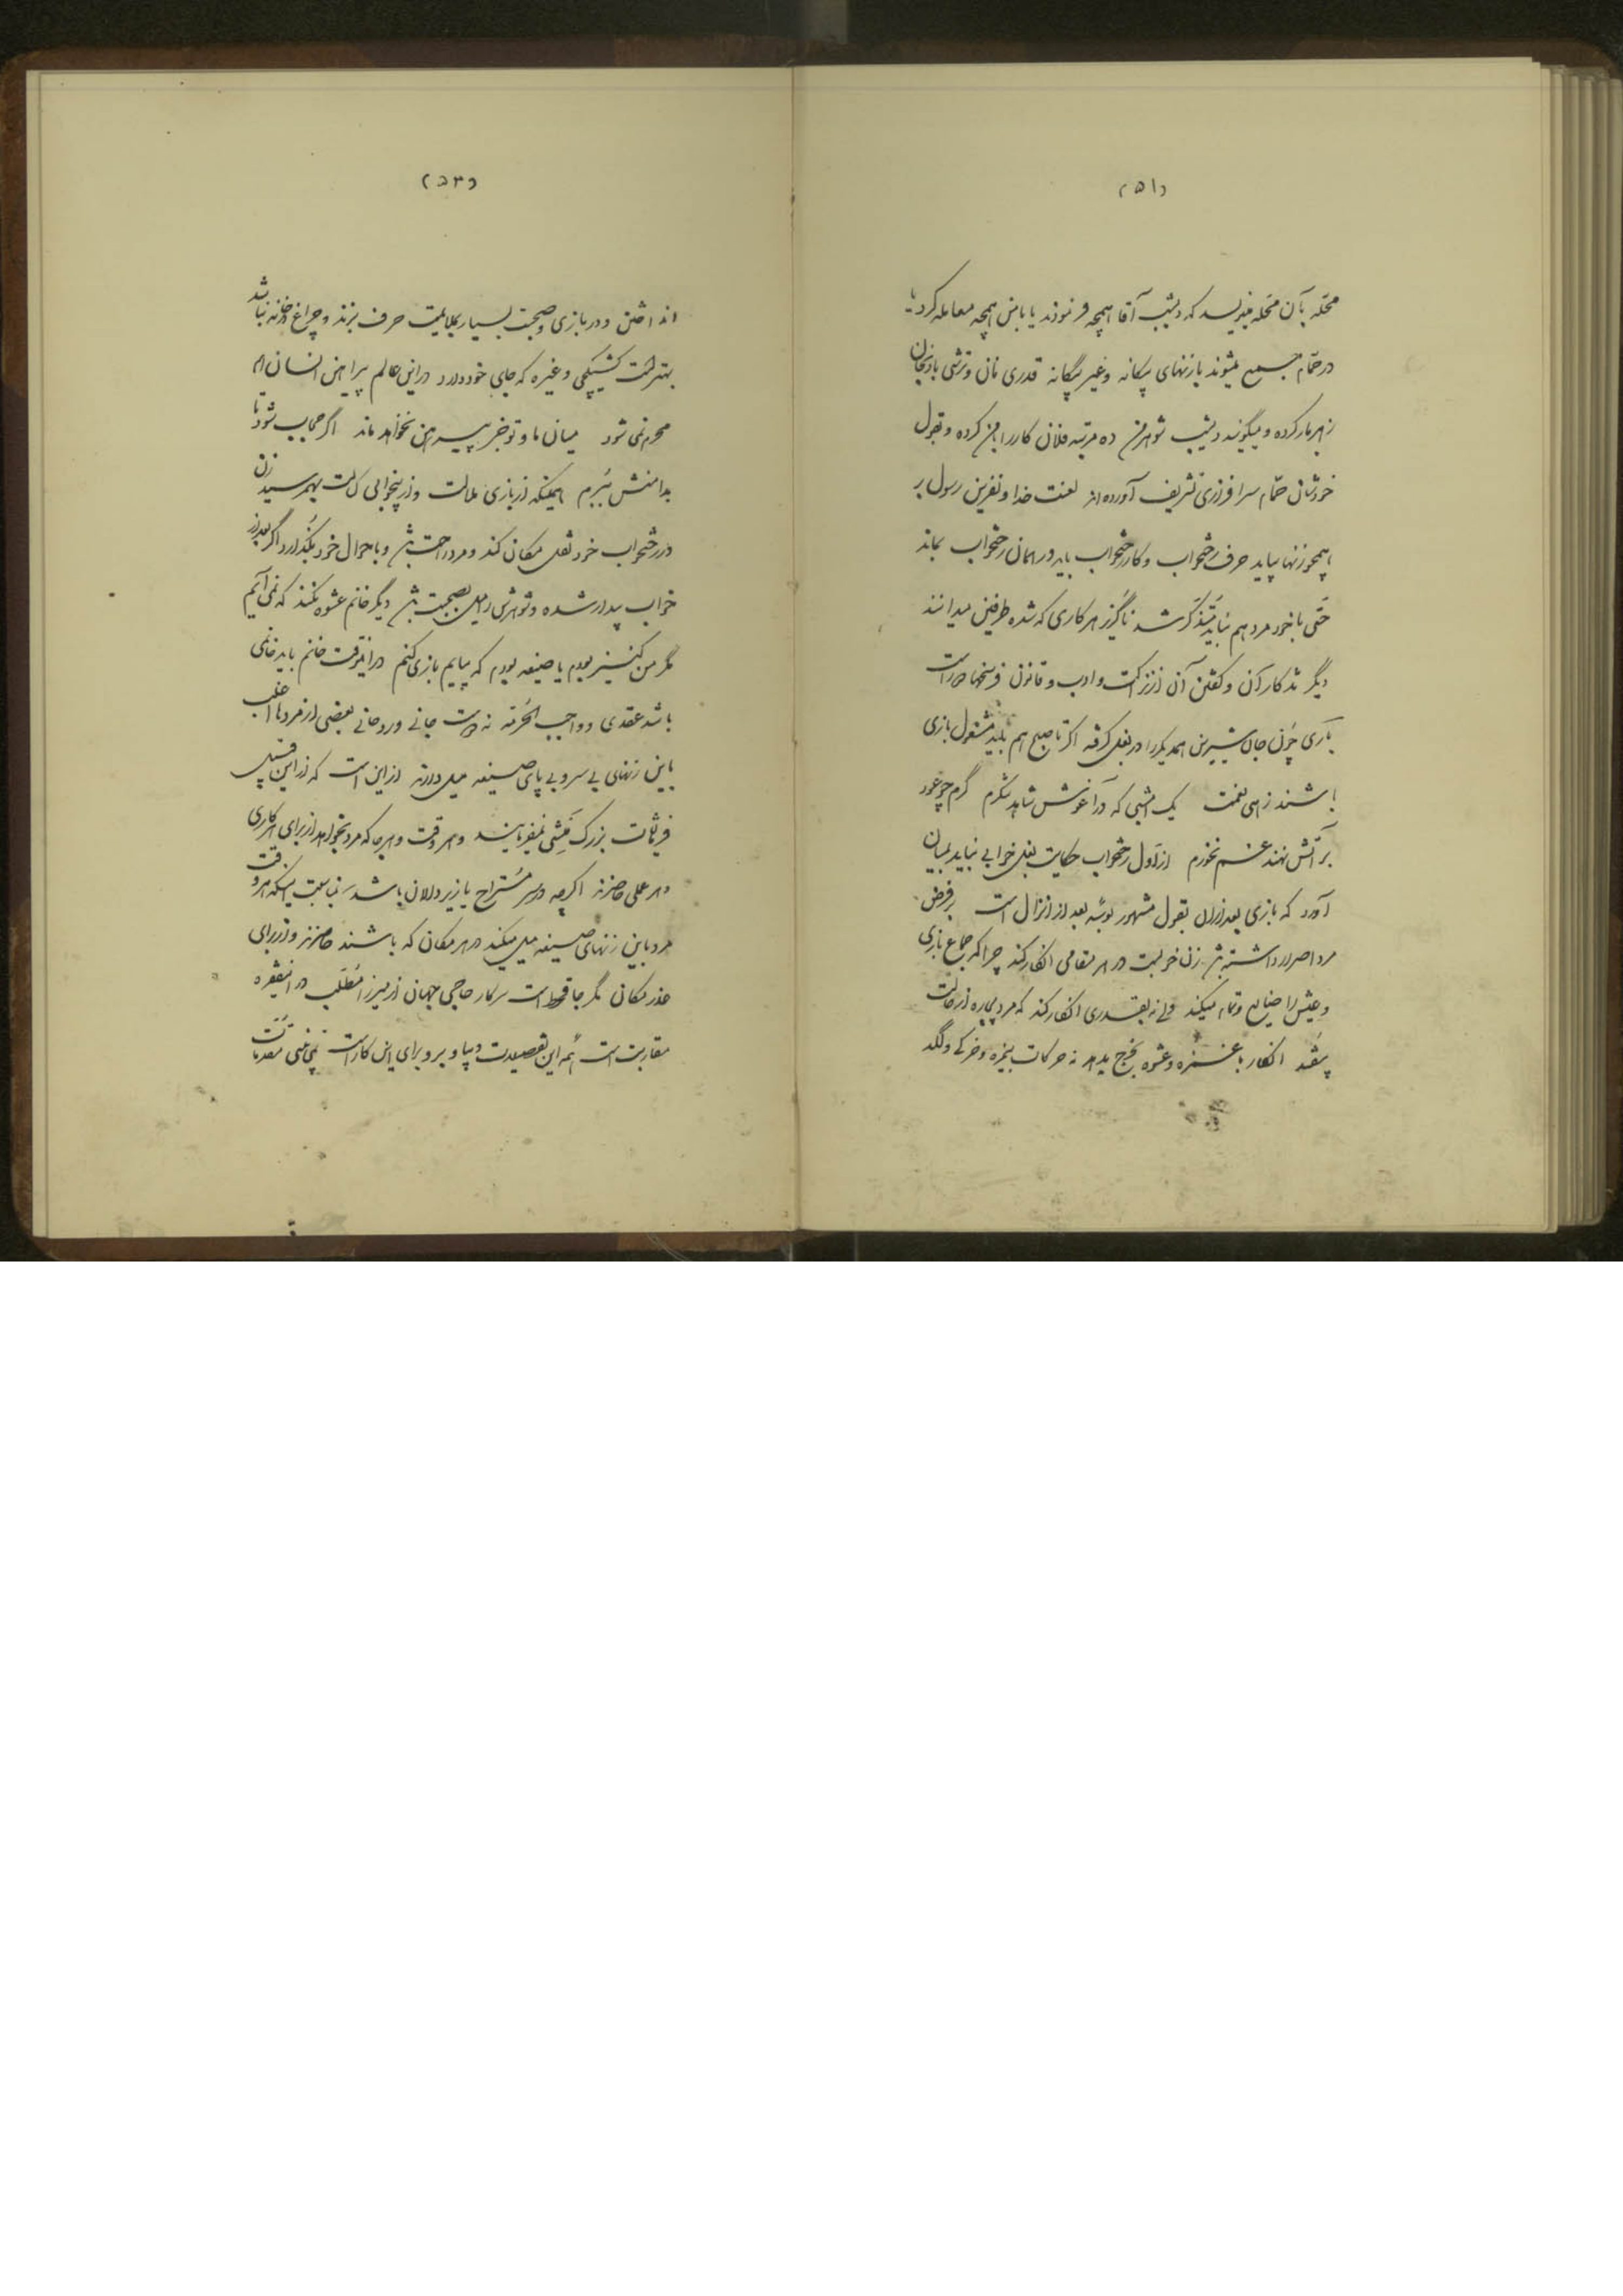 (۵۱)
محله بآن محله مینویسد که دیشب آقا همچه فرمودند یا با من همچه معامله کرد یا
در حمام جمع میشوند با زنهای بیگانه و غیر بیگانه قدری نان و ترشی بادنجان
زهرمار کرده و میگویند دیشب شوهر من ده مرتبه فلان کار را بمن کرده و بقول
خودشان حمام سرافرازی تشریف آورده‌اند لعنت خدا و نفرین رسول بر
همچو زنها بیاید حرف رختخواب و کار رختخواب باید در همان رختخواب بماند
حتی با خود مرد هم نباید متذکر شد ناگزیر هر کاری که شده طرفین میدانند
دیگر تذکار آن و گفتن آن از نزاکت و ادب و قانون فرسخها دور است
باری چون جان شیرین همدیگر را در بغل گرفته اگر تا صبح هم باید مشغول بازی
باشند زهی نعمت یک امشبی که در آغوش شاهد شکرم گرم چو عود
بر آتش نهند غم نخورم از اول رختخواب حکایت بغل خوابی نباید بمیان
آورد که بازی بعد از آن بقول مشهور بوسه بعد از انزال است بر فرض
مرد اصرار داشته باشد زن خوبست در هر مقامی انکار کند چرا که جماع بازی
و عیش را ضایع و تمام میکند ولی نه بقدری انکار کند که مرد بیچاره از حالت
بیفتد انکار با غمزه و عشوه بخرج بدهد نه حرکات بیمزه و خرکی و لگد
(۵۲)
انداختن و در بازی و صحبت بسیار بملایمت حرف بزند و چراغ در خانه نباشد
بهتر است کشیکچی و غیره که جای خود دارد در این عالم پیراهن انسان هم
محرم نمی‌شود میان ما و تو جز پیرهن نخواهد ماند اگر حجاب شود تا
بدامنش بدرم همینکه از بازی ملالت و از بیخوابی کسالت بهم رسید زن
در رختخواب خود نقل مکان کند و مرد راحت باشد و با حال خود بگذارد اگر بعد از
خواب بیدار شده و شوهرش را میل بصحبت باشد دیگر خانم عشوه نکند که نمی‌آیم
مگر من کنیز بودم یا صیغه بودم که بیایم بازی کنم در اینوقت خانم باید خانمی
باشد عقدی و واجب الحرمة نه دوست جانی و روحانی بعضی از مردها اغلب
باین زنهای بی سر و بی پای صیغه میل دارند از این است که از این قبیل
فرمایشات بزرگ منشی نمیفرمایند و هر وقت و هر جا که مرد بخواهد از برای هر کاری
و هر عملی حاضرند اگرچه در سر مستراح یا زیر دالان باشد بمناسبت اینکه هر وقت
مرد باین زنهای صیغه میل میکند در هر مکان که باشند حاضرند و از برای
عذر مکان مگر جا قحط است سرکار حاجی جهان از میرزا مطلب در اینفقره
مقاربت است همه این تفصیلات و بیا و برو برای این کار است